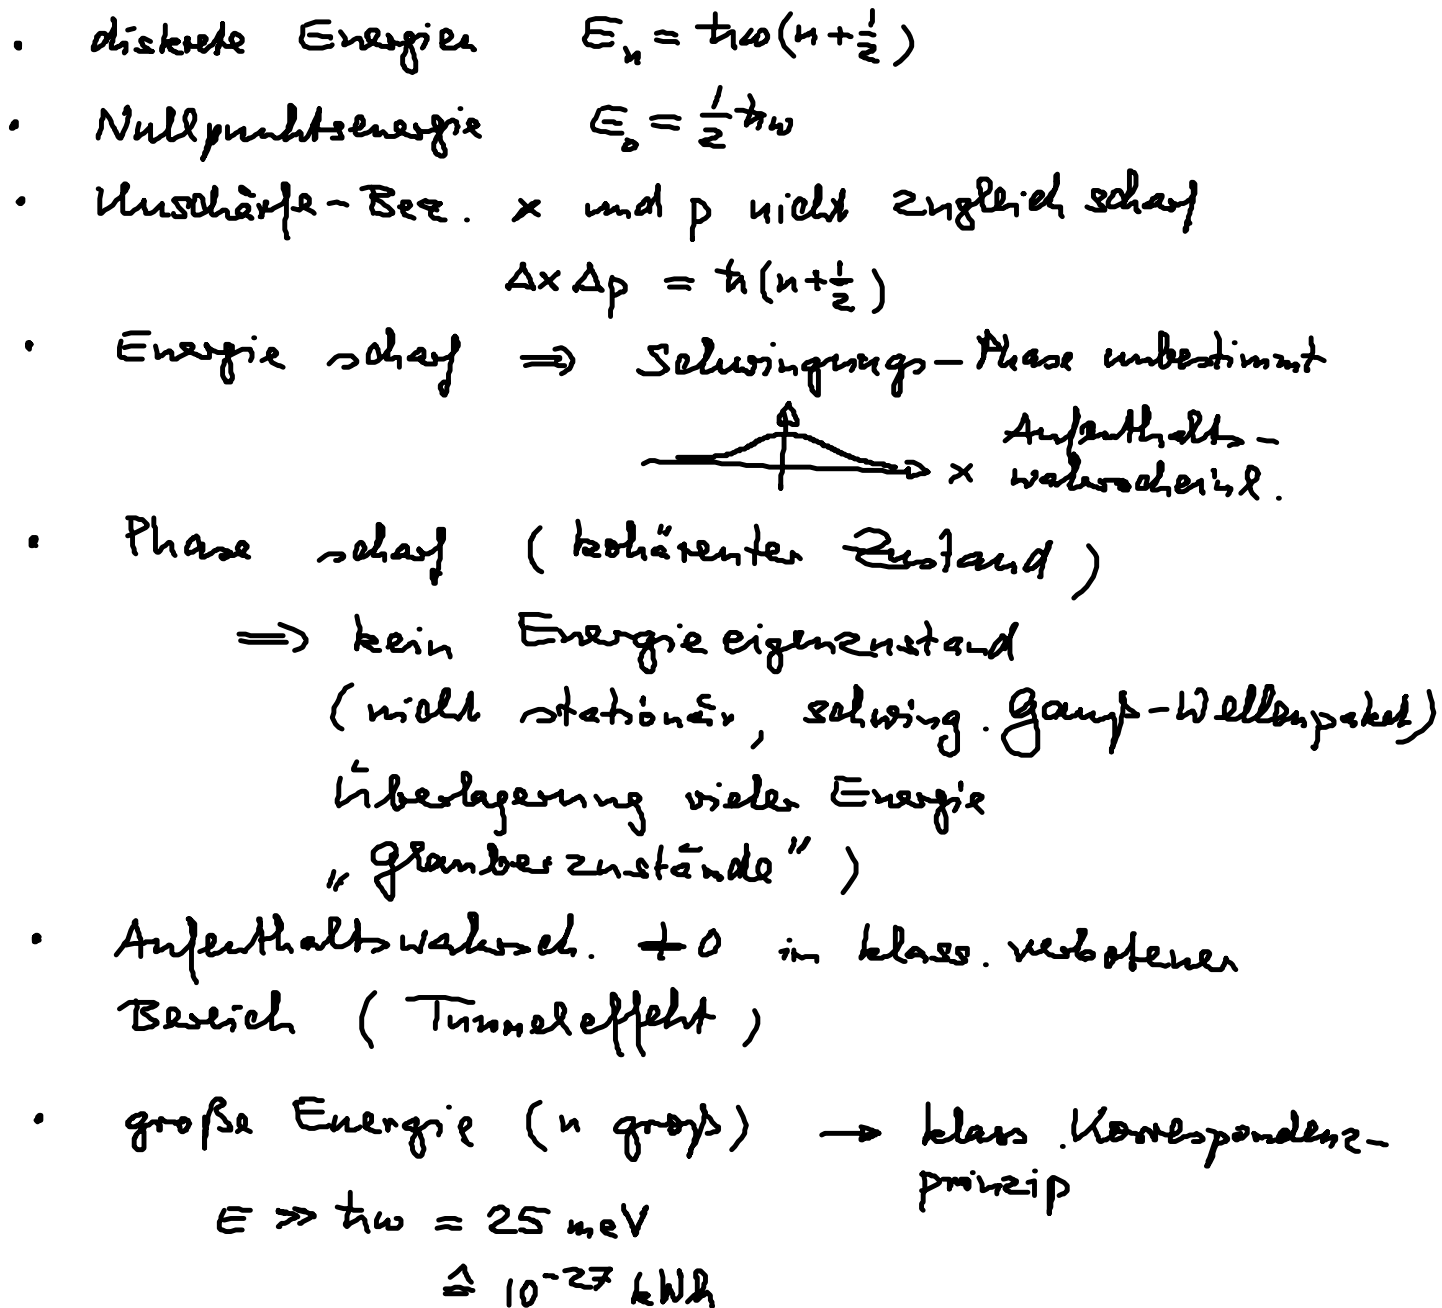 · diskrete Energien E_n = ħω(n+1/2)
· Nullpunktsenergie E_0 = 1/2 ħω
· Unschärfe-Bez. x und p nicht zugleich scharf
Δx Δp = ħ(n+1/2)
· Energie scharf ⇒ Schwingungs-Phase unbestimmt
x Aufenthalts-
wahrscheinl.
· Phase scharf (kohärenter Zustand)
⇒ kein Energieeigenzustand
(nicht stationär, schwing. Gauß-Wellenpaket)
Überlagerung vieler Energie
„Glauberzustände")
· Aufenthaltswahrsch. ≠ 0 in klass. verbotenen
Bereich (Tunneleffekt)
· große Energie (n groß) → klass. Korrespondenz-
prinzip
E ≫ ħω = 25 meV
≙ 10^-27 kWh